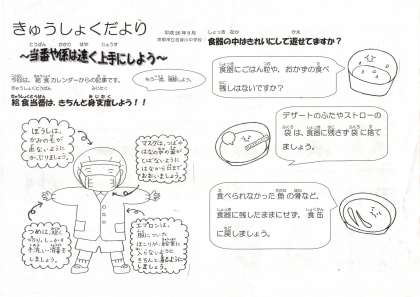 きゅうしょくだより
平成26年9月
～当番や係は速く上手にしよう～
今回は、給食カレンダーからの記事です。
給食当番は、きちんと身支度しよう！！
ぼうしは、
かみのもが
出ないように
かぶりましょう。
マスクは、つばや
はなが
とばないように
はなから口まで
おおいましょう。
つめは、短く
切り、しっかり
手洗い・消毒を
しましょう。
エプロンは、
服についた
ほこりが、給食に
入らないように
きちんと着ましょう。
食器の中はきれいにして返せてますか？
食器にごはん粒や、おかずの食べ
残しはないですか？
デザートのふたやストローの
袋は、食器に残さず袋に捨て
ましょう。
食べられなかった魚の骨など、
食器に残したままにせず、食缶
に戻しましょう。